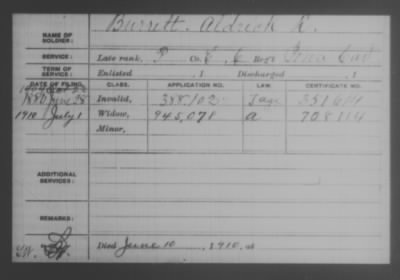 NAME OF SOLDIER: Burrett. Aldrich
SERVICE: Late rank, P Co. E, 6 Reg't Iowa Cav
TERM OF SERVICE: Enlisted , 1 Discharged , 1
DATE OF FILING. CLASS. APPLICATION NO. LAW. CERTIFICATE NO.
1880 June 28 Invalid, 388.102
1910 July 1 Widow, 945,078 a 708114
Minor,
ADDITIONAL SERVICES:
REMARKS:
Died June 10, 1910, at